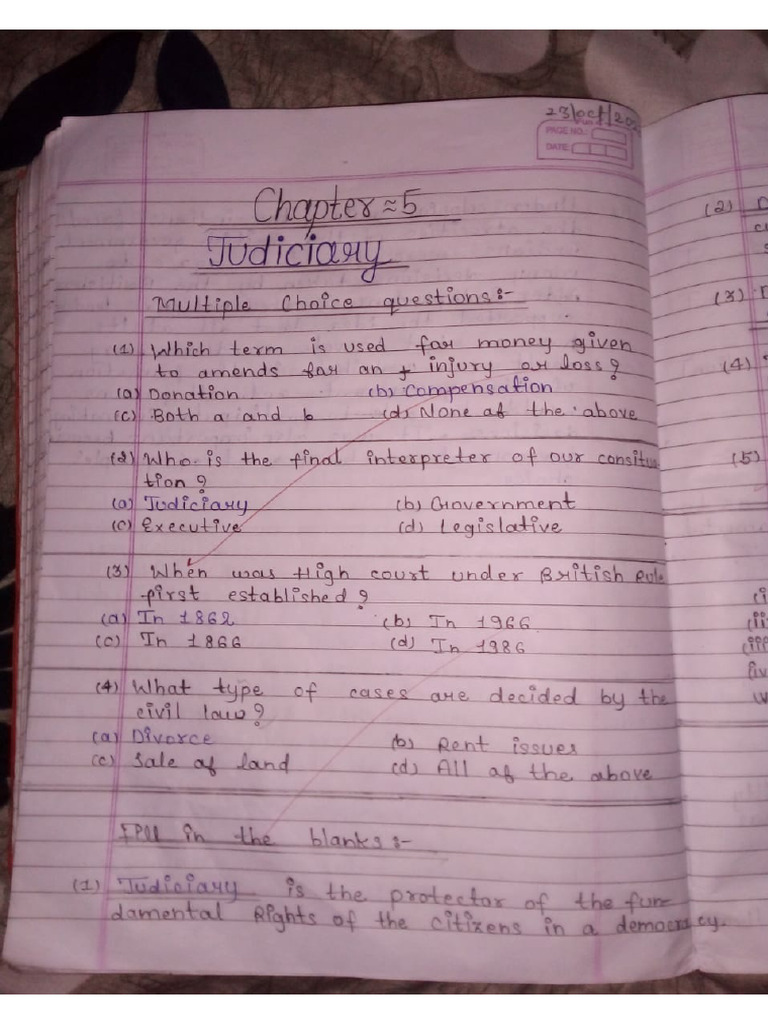 23/Oct/20
PAGE NO.:
DATE:
Chapter ≈ 5
Judiciary
Multiple Choice questions:-
(1) Which term is used for money given
to amends for an injury or loss?
(a) Donation (b) Compensation
(c) Both a and b (d) None of the above
(2) Who is the final interpreter of our consitu
tion?
(a) Judiciary (b) Government
(c) Executive (d) Legislative
(3) When was High court under British Rule
first established?
(a) In 1862 (b) In 1966
(c) In 1866 (d) In 1986
(4) What type of cases are decided by the
civil law?
(a) Divorce (b) Rent issues
(c) Sale of land (d) All of the above
Fill in the blanks:-
(1) Judiciary is the protector of the fun-
damental Rights of the citizens in a democracy.
(2)
(3)
(4)
(5)
(i
(ii
(iii
(iv
(v